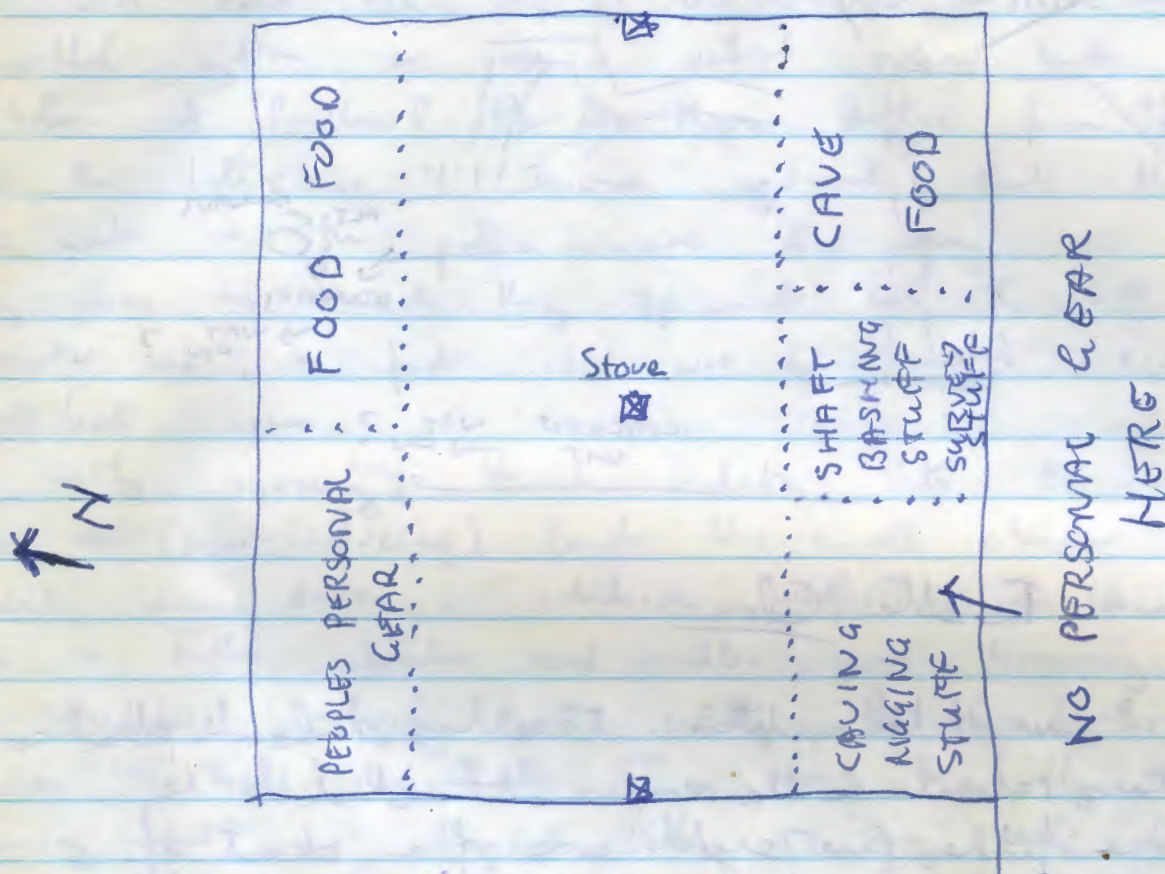 N
PEOPLES PERSONAL
GEAR
FOOD FOOD
Stove
CAVING
RIGGING
STUFF
SHAFT
BASHING
STUFF
SURVEY
STUFF
CAVE
FOOD
NO PERSONAL GEAR
HERE